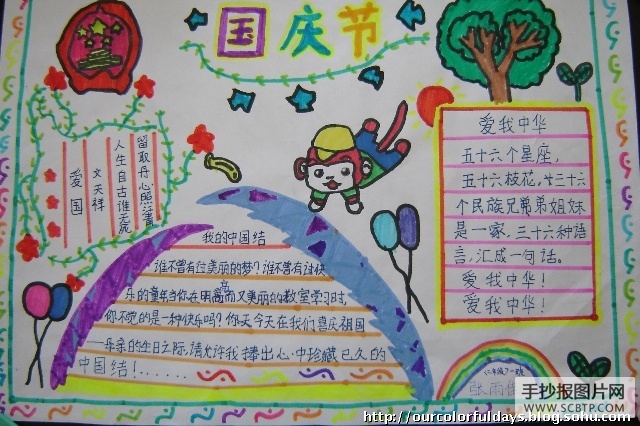 国庆节
爱国
文天祥
人生自古谁无死
留取丹心照汗青
我的中国结
谁不曾有过美丽的梦?谁不曾有过快
乐的童年当你在明亮而又美丽的教室学习时,
你不觉的是一种快乐吗?你天今天在我们喜庆祖国
——母亲的生日之际,请允许我捧出心中珍藏已久的
中国结!......
爱我中华
五十六个星座,
五十六枝花,廿三十六
个民族兄弟弟姐妹
是一家,三十六种语
言,汇成一句话。
爱我中华!
爱我中华!
张雨
手抄报图片网
WWW.SCBTP.COM
http://ourcolorfuldays.blog.sohu.com